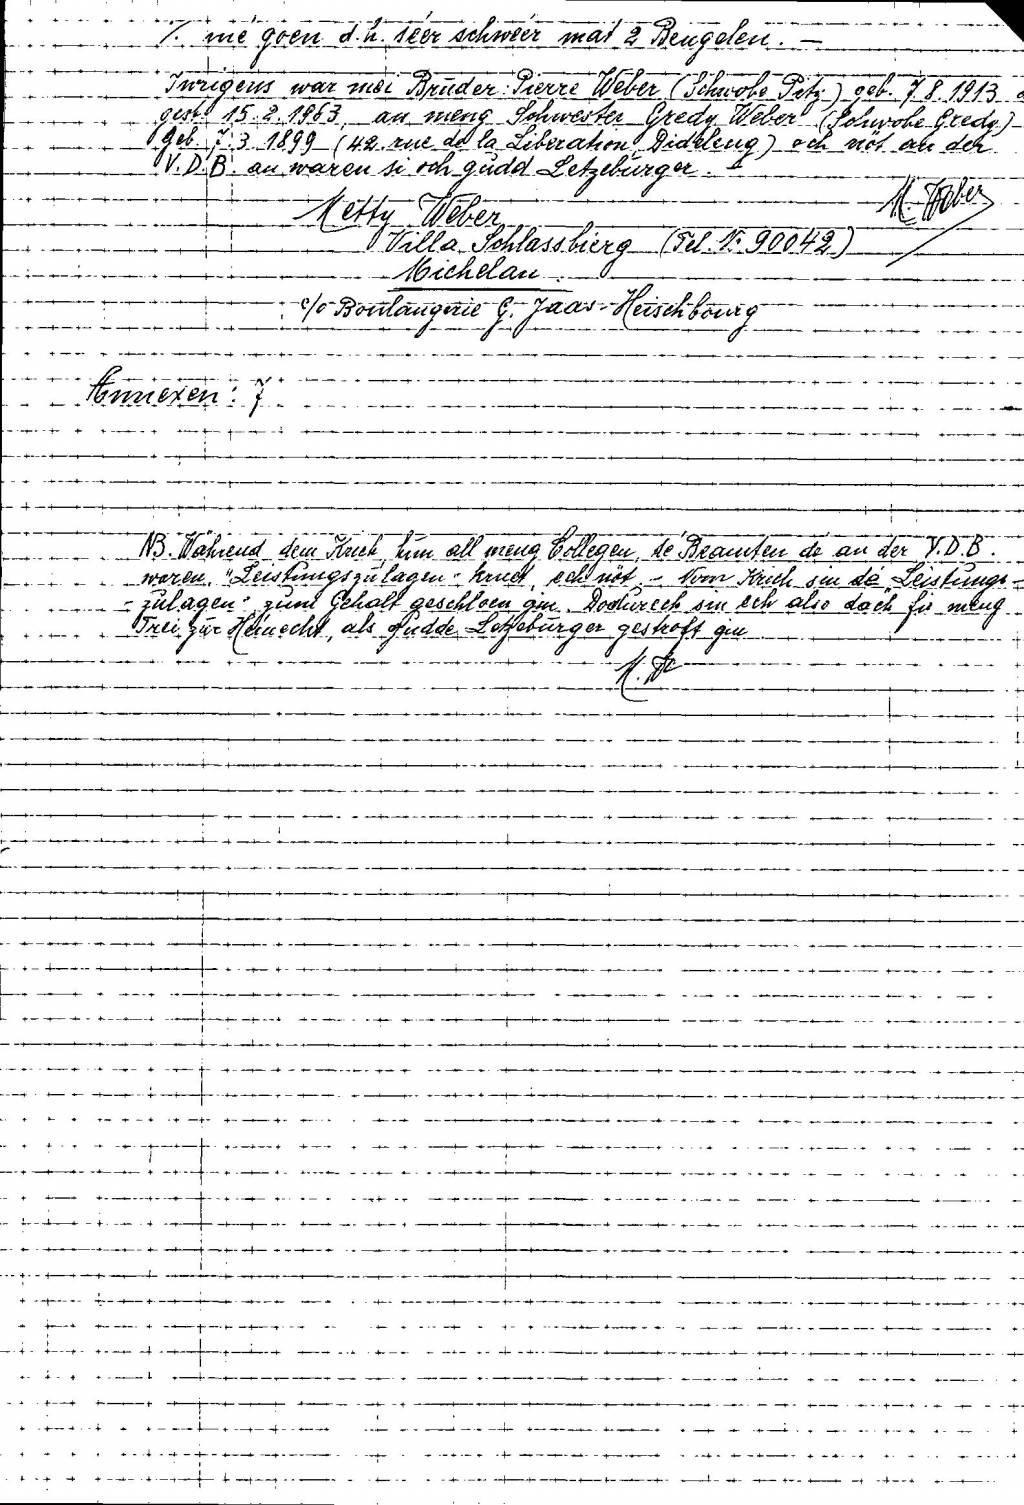 7. mé goen d.h. séer schwéer mat 2 Bengelen. —
Iwrigens war méi Bruder: Pierre Weber (Schwobe Pitz) geb. 7.8.1913
gest. 15.2.1963, an meng Schwester Gredy Weber (Schwobe Gredy)
geb. 7.3.1899 (42 rue de la Liberation Dideleng) och nöt an der
V.D.B. an waren si och gudd Letzebürger. —
M. Weber
Metty Weber
Villa Schlassbierg (Tel. Nr 90042)
Michelau
c/o Boulangerie G. Jaas-Heischbourg
Annexen: 7
NB. Während dem Krich hun all meng Collegen, dé Beamten dé an der V.D.B.
waren, "Leistungszulagen" kruct, ech nöt. - Vom Krich sin dé "Leistungs-
-zulagen" zum Gehalt geschloen gin. Dodurech sin ech also dach fir meng
Trei zur Heinecht, als gudde Letzebürger gestroft gin
M. W